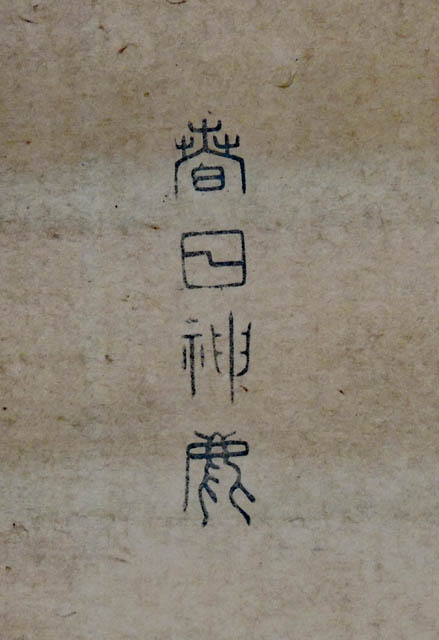 春日神鹿